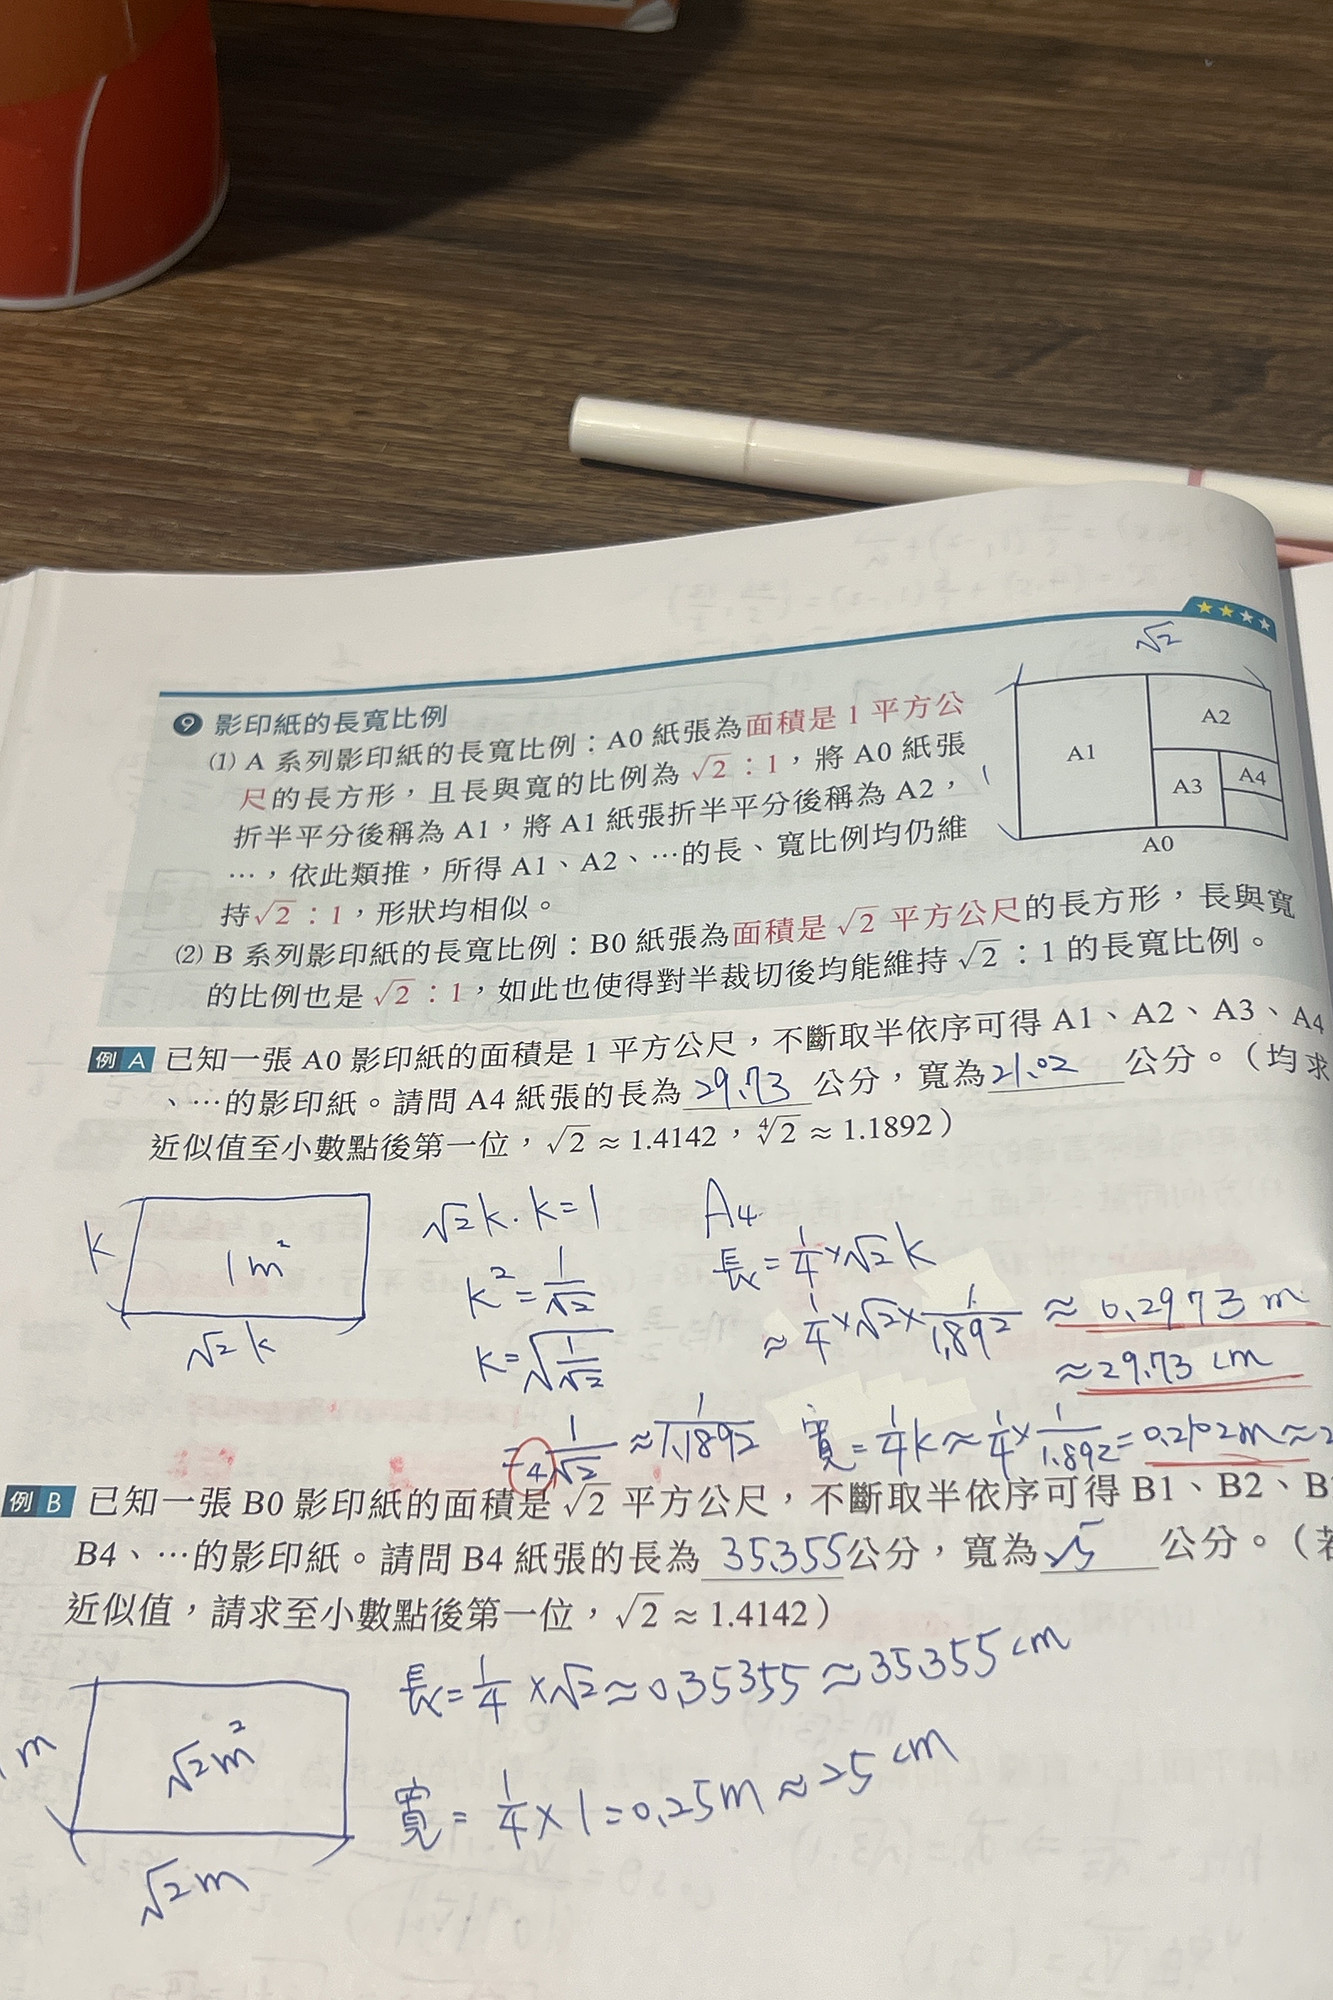 √2
❾ 影印紙的長寬比例
⑴ A 系列影印紙的長寬比例：A0 紙張為面積是 1 平方公
尺的長方形，且長與寬的比例為 √2：1，將 A0 紙張
折半平分後稱為 A1，將 A1 紙張折半平分後稱為 A2，
…，依此類推，所得 A1、A2、…的長、寬比例均仍維
持√2：1，形狀均相似。
A1
A2
A3
A4
A0
1
⑵ B 系列影印紙的長寬比例：B0 紙張為面積是 √2 平方公尺的長方形，長與寬
的比例也是 √2：1，如此也使得對半裁切後均能維持 √2：1 的長寬比例。
例 A 已知一張 A0 影印紙的面積是 1 平方公尺，不斷取半依序可得 A1、A2、A3、A4
、…的影印紙。請問 A4 紙張的長為 29.73 公分，寬為 21.02 公分。（均求
近似值至小數點後第一位，√2 ≈ 1.4142，∜2 ≈ 1.1892）
k
1m²
√2 k
√2 k · k = 1
k² = 1/√2
k = √(1/√2)
= 1/∜2 ≈ 1/1.1892
A4
長 = 1/4 × √2 k
≈ 1/4 × √2 × 1/1.892 ≈ 0.2973 m
≈ 29.73 cm
寬 = 1/4 k ≈ 1/4 × 1/1.892 = 0.2102m ≈ 2
例 B 已知一張 B0 影印紙的面積是 √2 平方公尺，不斷取半依序可得 B1、B2、B
B4、…的影印紙。請問 B4 紙張的長為 35.355 公分，寬為 25 公分。（若
近似值，請求至小數點後第一位，√2 ≈ 1.4142）
m
√2 m²
√2 m
長 = 1/4 × √2 ≈ 0.35355 ≈ 35.355 cm
寬 = 1/4 × 1 = 0.25m ≈ 25 cm